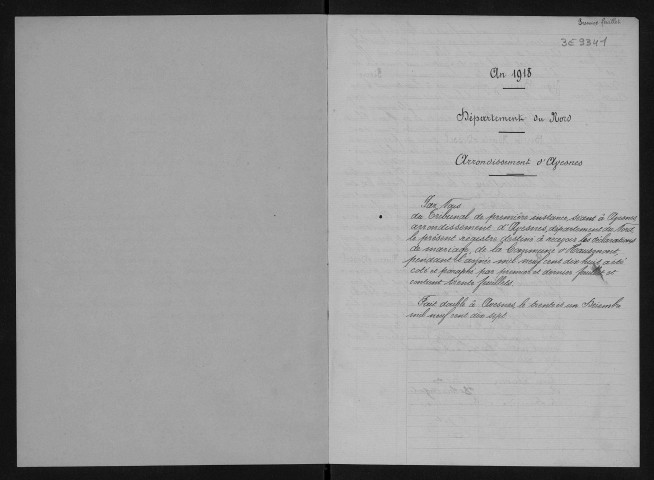 Premier feuillet
3E 9341
An 1918
Département du Nord
Arrondissement d'Avesnes
Par Nous
du Tribunal de première instance, séant à Avesnes
arrondissement d'Avesnes, département du Nord,
le présent registre destiné à recevoir les déclarations
de mariage, de la Commune d'Hautmont,
pendant l'année mil neuf cent dix huit a été
coté et paraphé par premier et dernier feuillet et
contient trente feuillets.
Fait double à Avesnes, le trente et un Décembre
mil neuf cent dix sept